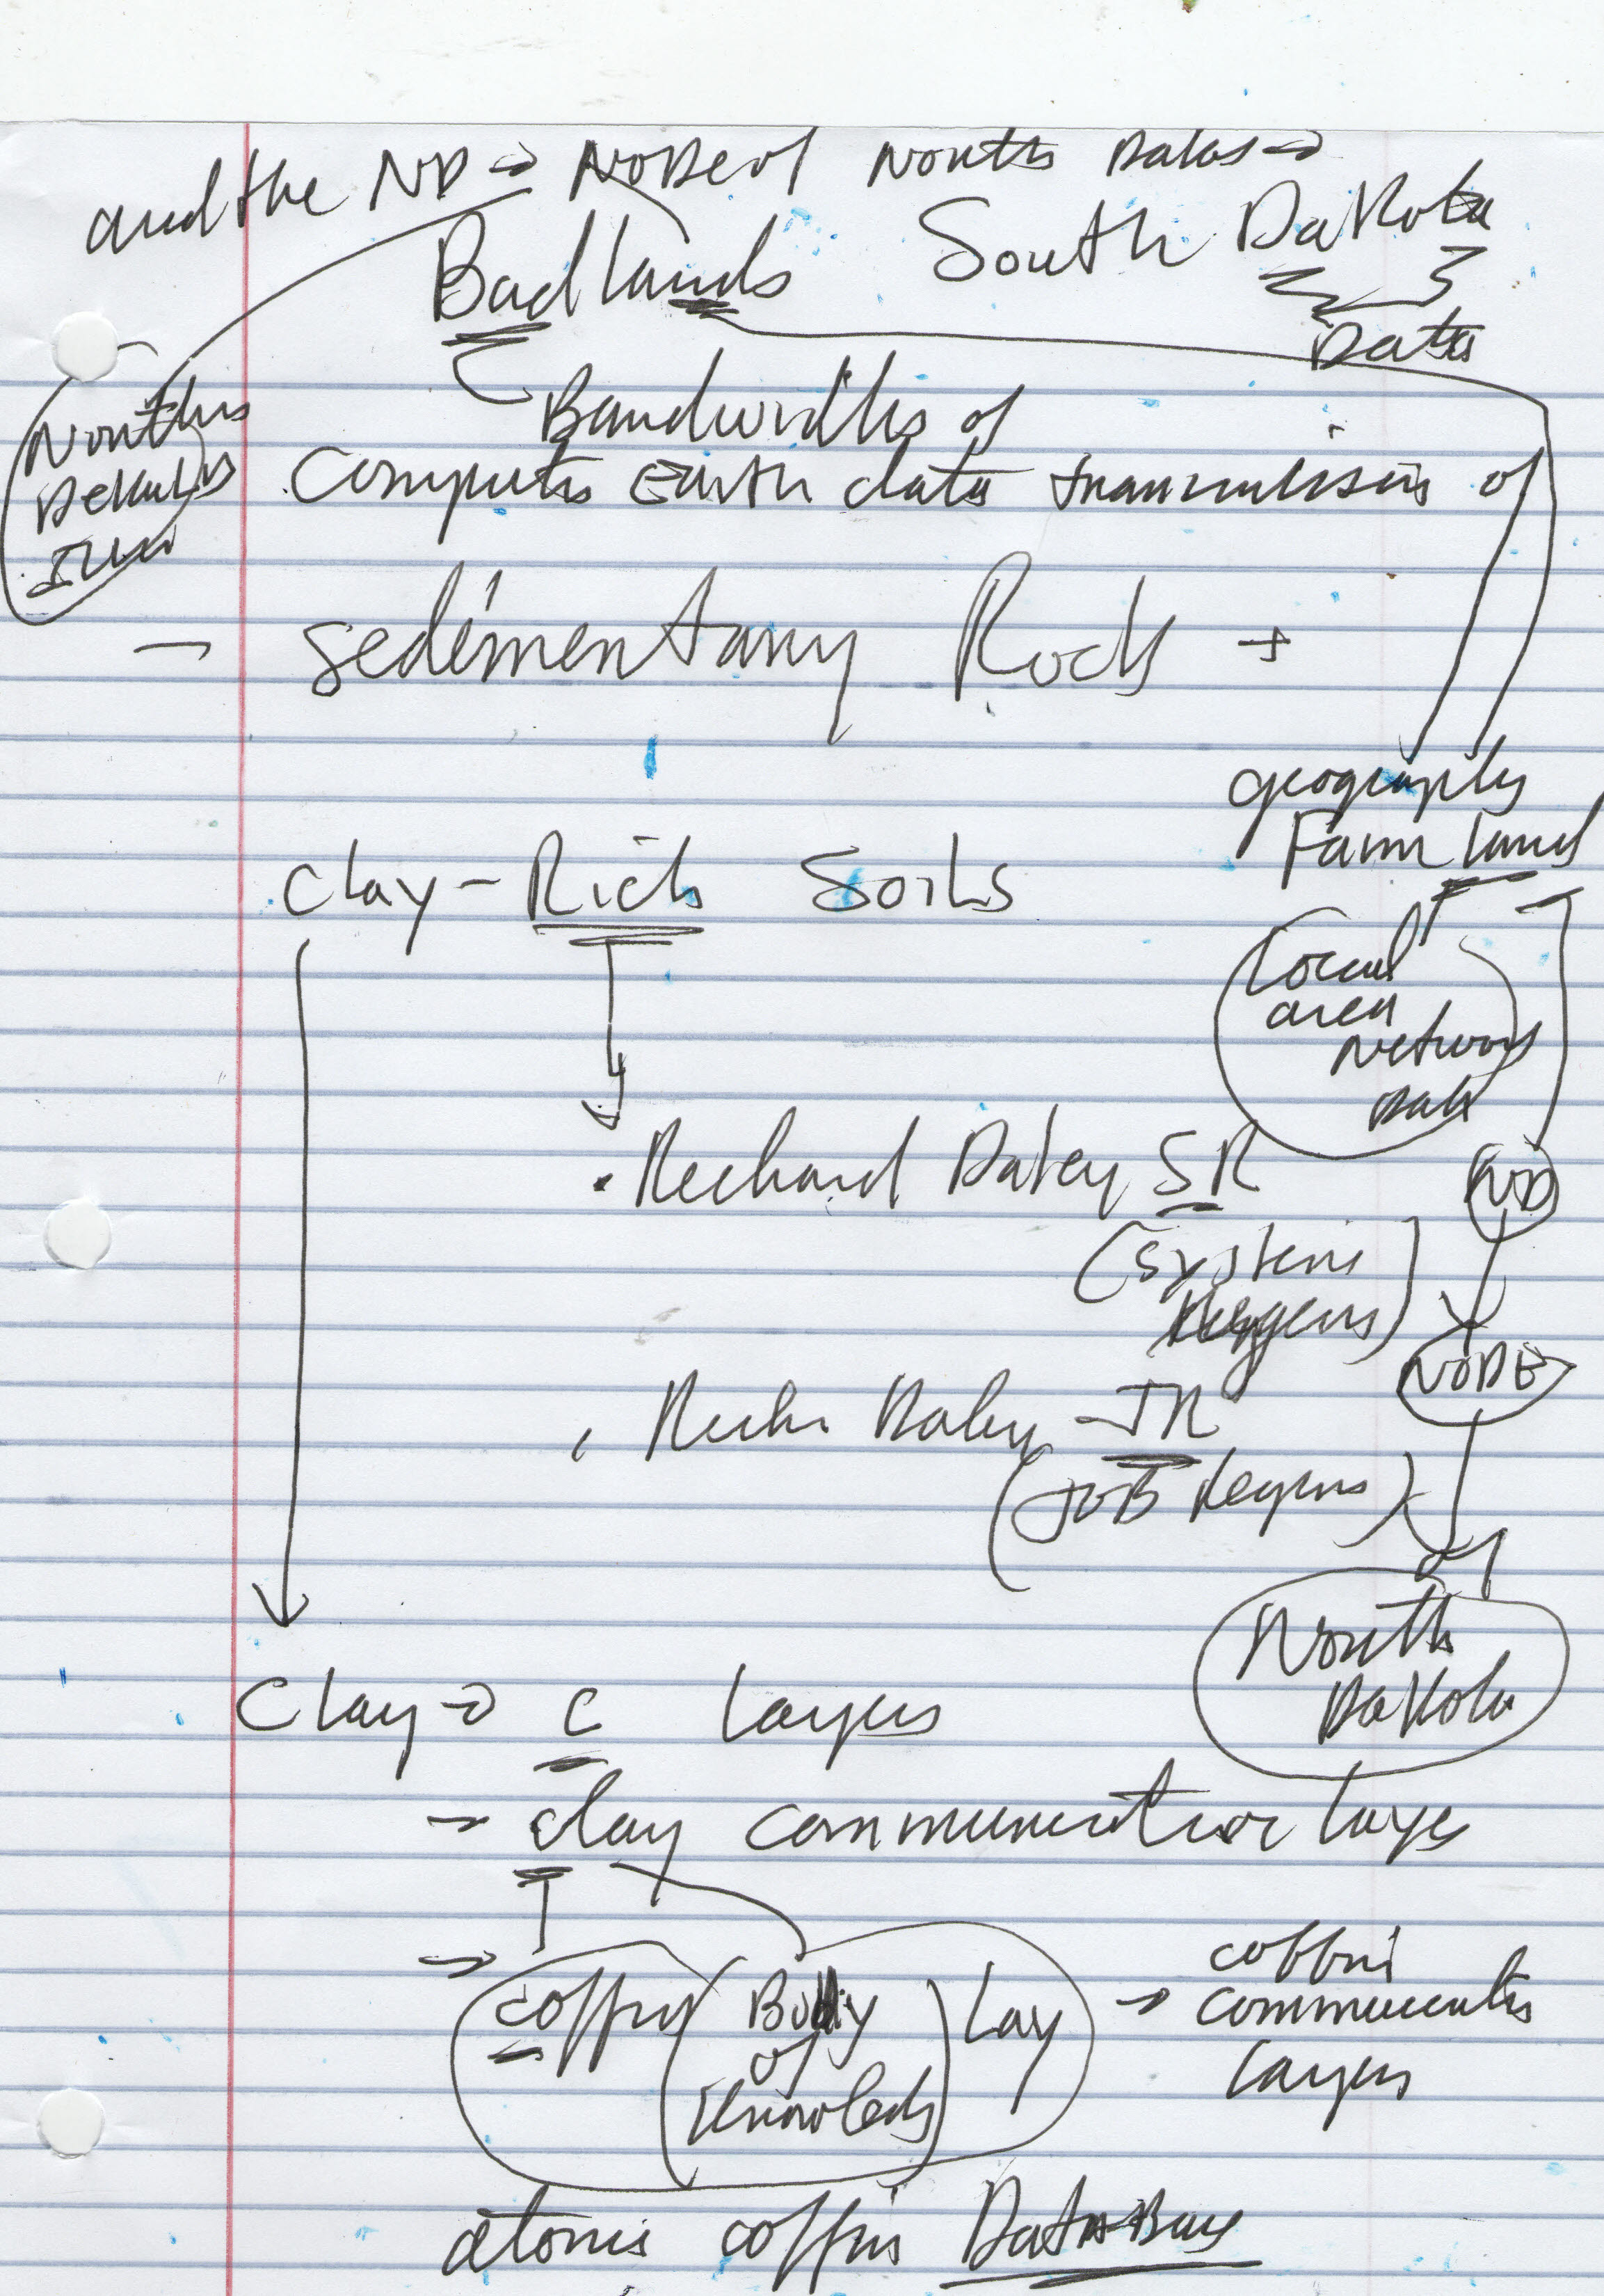 and the ND → NODE of North Datas →
Badlands South Dakota
Data
Bandwidths of
Computer Earth data transmission of
Northis
sedimentary Rock +
geography
Farm land
Clay-Rich Soils
Local
area
Network
Data
Richard Daley SR
(System
ND
NODE
Daley JR
(JOB
North
Dakota
Clay → C layers
→ clay communication layer
→ coffin (Body of Knowledge) Lay → coffin
communication
layers
atomic coffin DataBase